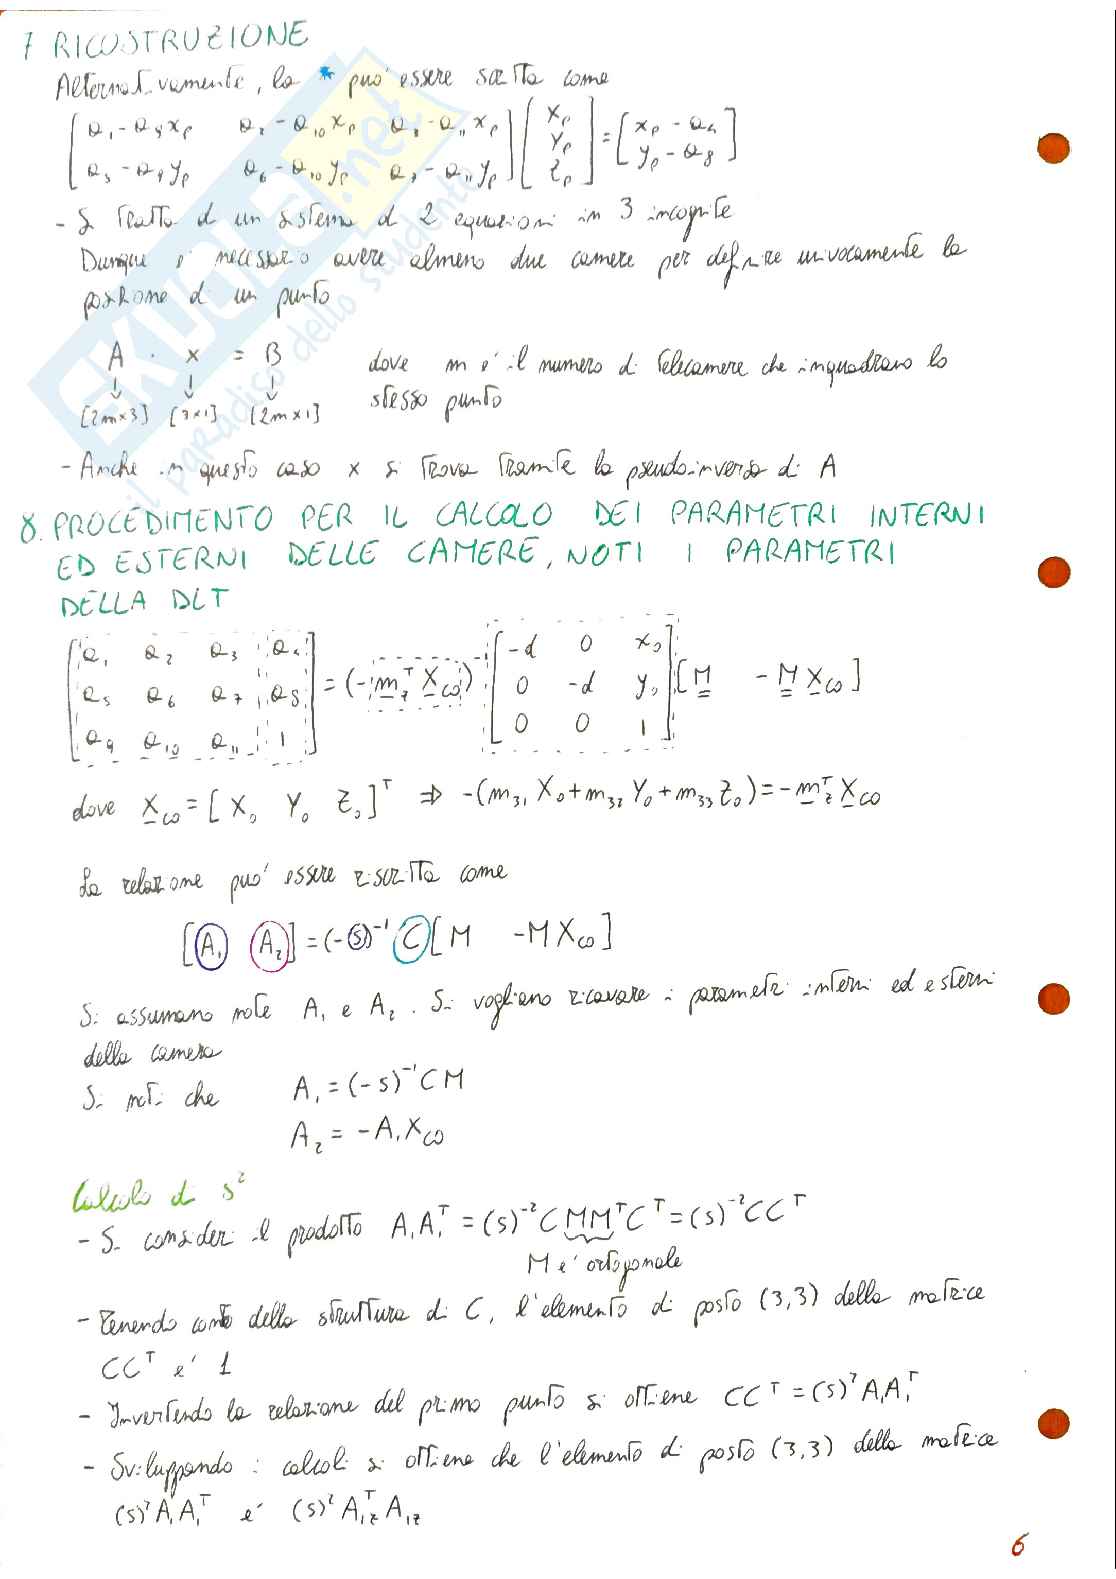 7 RICOSTRUZIONE
Alternativamente, la * può essere scritta come
[a₁-a₉xₚ a₂-a₁₀xₚ a₃-a₁₁xₚ] [Xₚ] = [xₚ-a₄]
[a₅-a₉yₚ a₆-a₁₀yₚ a₇-a₁₁yₚ] [Yₚ] [yₚ-a₈]
[Zₚ]
- Si tratta di un sistema di 2 equazioni in 3 incognite
Dunque è necessario avere almeno due camere per definire univocamente la
posizione di un punto
A · x = B dove m è il numero di telecamere che inquadrano lo
[2m×3] [3×1] [2m×1] stesso punto
- Anche in questo caso x si trova tramite la pseudoinversa di A
8. PROCEDIMENTO PER IL CALCOLO DEI PARAMETRI INTERNI
ED ESTERNI DELLE CAMERE, NOTI I PARAMETRI
DELLA DLT
[a₁ a₂ a₃ a₄] [-d 0 x₀]
[a₅ a₆ a₇ a₈] = (-m_zᵀ X_CO)⁻¹ [0 -d y₀] [M -M X_CO]
[a₉ a₁₀ a₁₁ 1] [0 0 1]
dove X_CO = [X₀ Y₀ Z₀]ᵀ ⇒ -(m₃₁X₀+m₃₂Y₀+m₃₃Z₀) = -m_zᵀ X_CO
La relazione può essere riscritta come
[A₁ A₂] = (-s)⁻¹ C [M -MX_CO]
Si assumano note A₁ e A₂. Si vogliano ricavare i parametri interni ed esterni
della camera
Si noti che A₁ = (-s)⁻¹CM
A₂ = -A₁X_CO
Calcolo di s²
- Si consideri il prodotto A₁A₁ᵀ = (s)⁻²CMMᵀCᵀ = (s)⁻²CCᵀ
M è ortogonale
- Tenendo conto della struttura di C, l'elemento di posto (3,3) della matrice
CCᵀ è 1
- Invertendo la relazione del primo punto si ottiene CCᵀ = (s)²A₁A₁ᵀ
- Sviluppando i calcoli si ottiene che l'elemento di posto (3,3) della matrice
(s)²A₁A₁ᵀ è (s)²A₁zᵀA₁z
6
SKUOLA.net
il paradiso dello studente